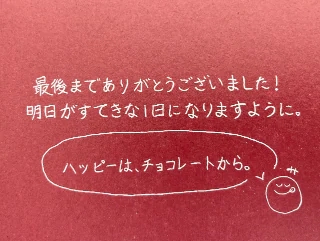 最後までありがとうございました!
明日がすてきな1日になりますように。
ハッピーは、チョコレートから。